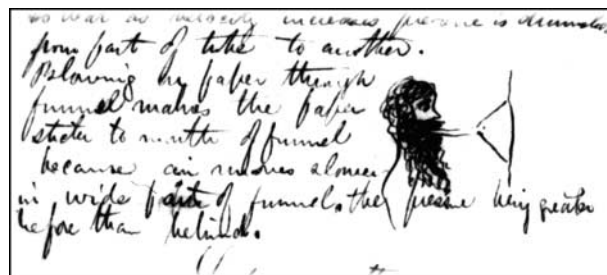 as velocity increases pressure is
from part of tube to another.
Blowing on paper through
funnel makes the paper
stick to mouth of funnel
because air moves slower
in wide part of funnel, the pressure being greater
before than behind.